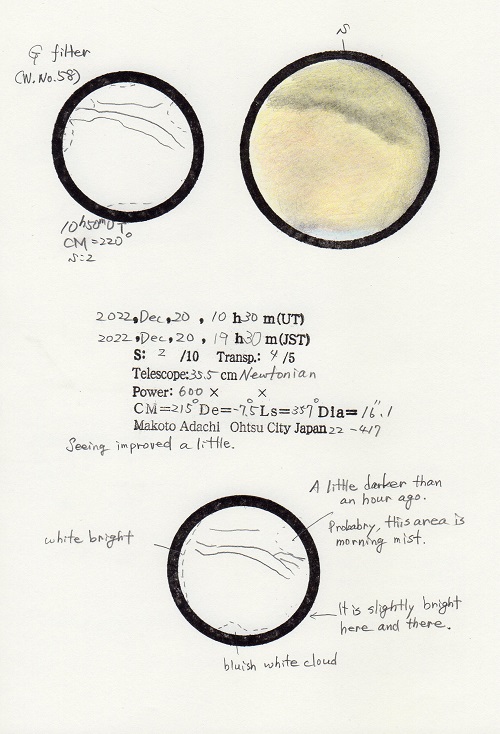 G filter
(W.No.58)
S
10h50mUT
CM=220°
S=2
2022,Dec,20, 10 h30 m(UT)
2022,Dec,20, 19 h30 m(JST)
S: 2 /10 Transp.: 4 /5
Telescope:35.5 cm Newtonian
Power: 600 × ×
CM=215° De=-7.5° Ls=357° Dia=16".1
Makoto Adachi Ohtsu City Japan 22-417
Seeing improved a little.
A little darker than
an hour ago.
Probabry, this area is
morning mist.
white bright
It is slightly bright
here and there.
bluish white cloud